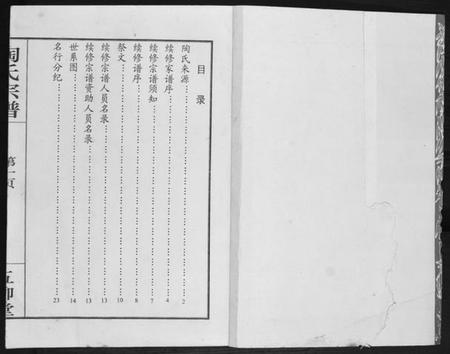 目录
陶氏来源 2
续修家谱序 4
续修宗谱须知 7
续修谱序 8
祭文 10
续修宗谱人员名录 13
续修宗谱资助人员名录 13
世系图 14
名行分纪 23
陶氏宗谱
第一页
五柳堂